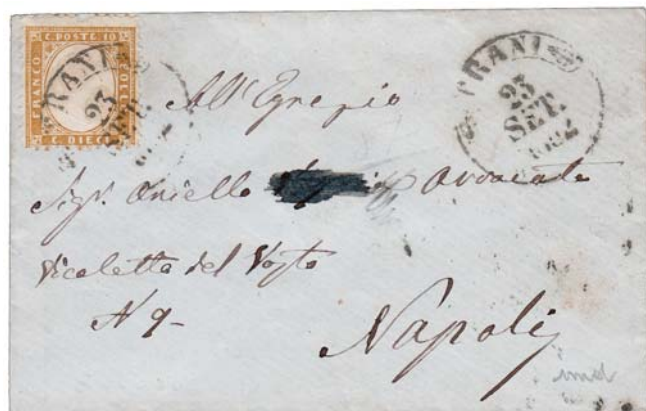 C. POSTE 10
FRANCO
BOLLO
C. DIECI
TRANI
23
SET.
TRANI
23
SET.
1862
All'Egregio
Sigr. Aniello Avvocato
Vicoletto del Vasto
N 9-
Napoli